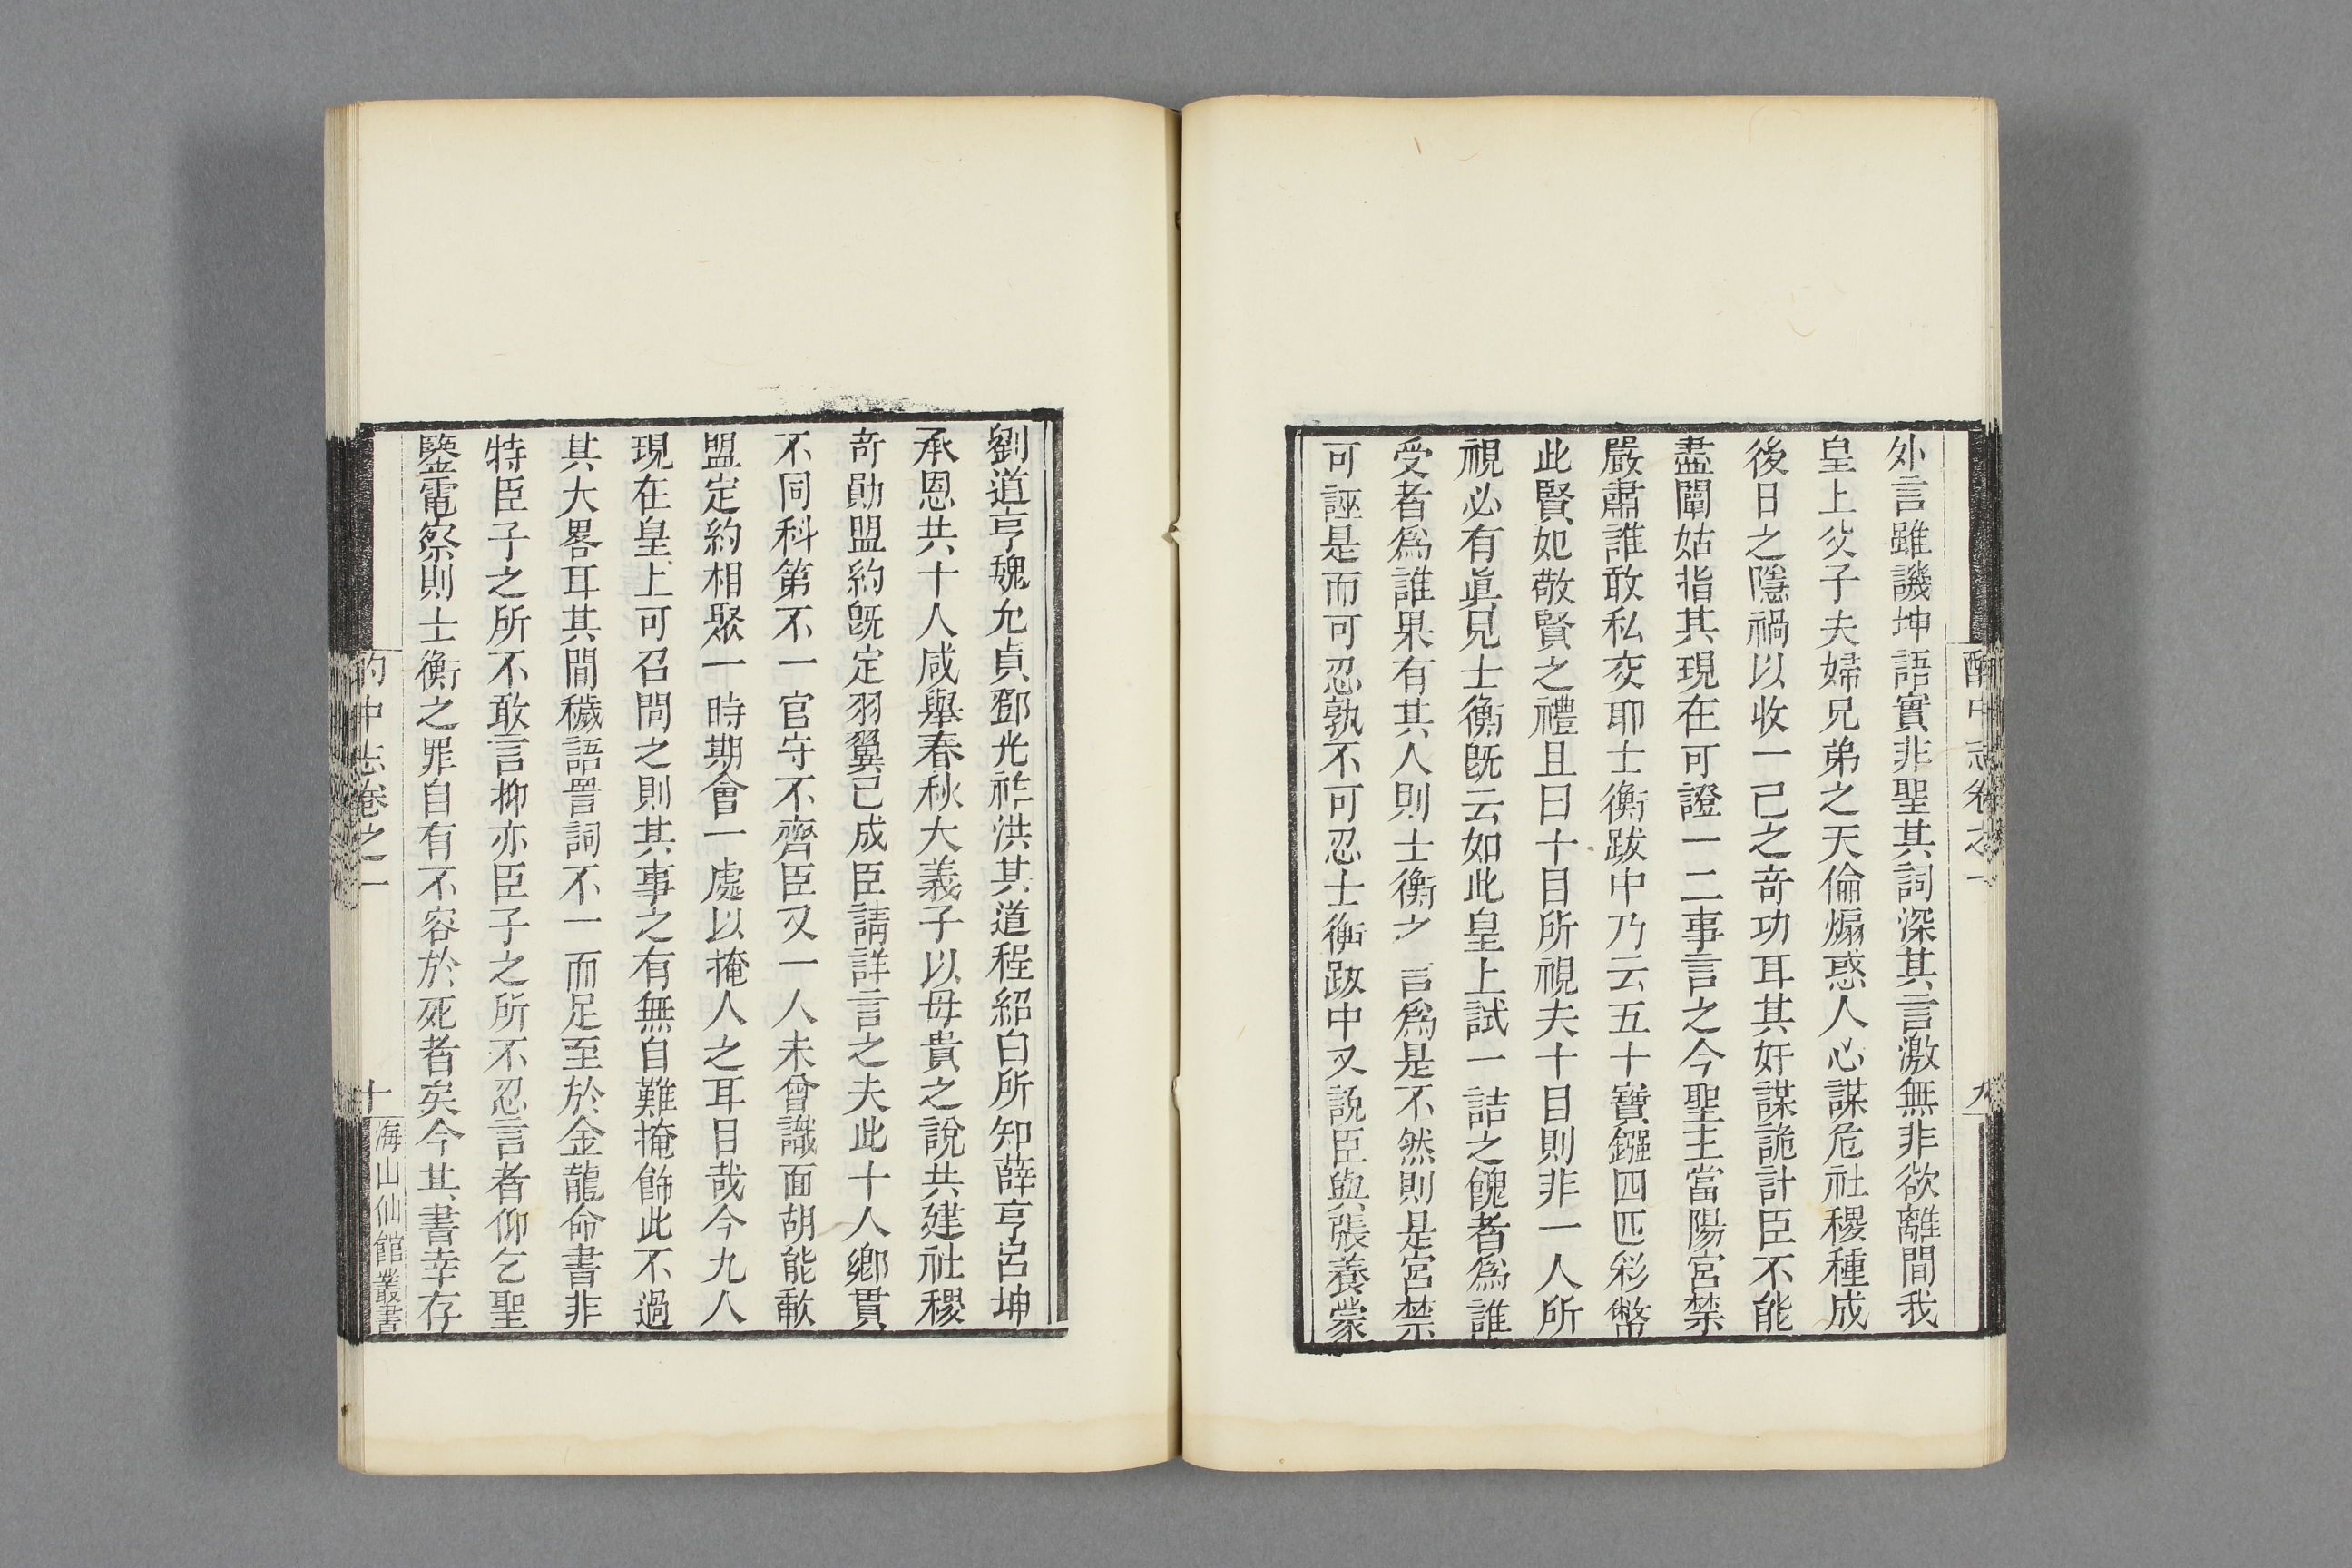 酌中志卷之一
九
外言雖譏坤語實非聖其詞深其言激無非欲離間我
皇上父子夫婦兄弟之天倫煽惑人心謀危社稷種成
後日之隱禍以收一己之奇功耳其奸謀詭計臣不能
盡闡姑指其現在可證一二事言之今聖主當陽宮禁
嚴肅誰敢私交耶士衡跋中乃云五十寶鏹四匹彩幣
此賢妃敬賢之禮且曰十目所視夫十目則非一人所
視必有眞兄士衡既云如此皇上試一詰之餽者爲誰
受者爲誰果有其人則士衡之言爲是不然則是宮禁
可誣是而可忍孰不可忍士衡跋中又說臣與張養蒙
劉道亨魏允貞鄧光祚洪其道程紹白所知薛亨呂坤
承恩共十人咸舉春秋大義子以母貴之說共建社稷
奇勛盟約既定羽翼已成臣請詳言之夫此十人鄉貫
不同科第不一官守不齊臣又一人未曾識面胡能歃
盟定約相聚一時期會一處以掩人之耳目哉今九人
現在皇上可召問之則其事之有無自難掩飾此不過
其大畧耳其間穢語詈詞不一而足至於金龍命書非
特臣子之所不敢言抑亦臣子之所不忍言者仰乞聖
鑒電察則士衡之罪自有不容於死者矣今其書幸存
酌中志卷之一
十
海山仙館叢書